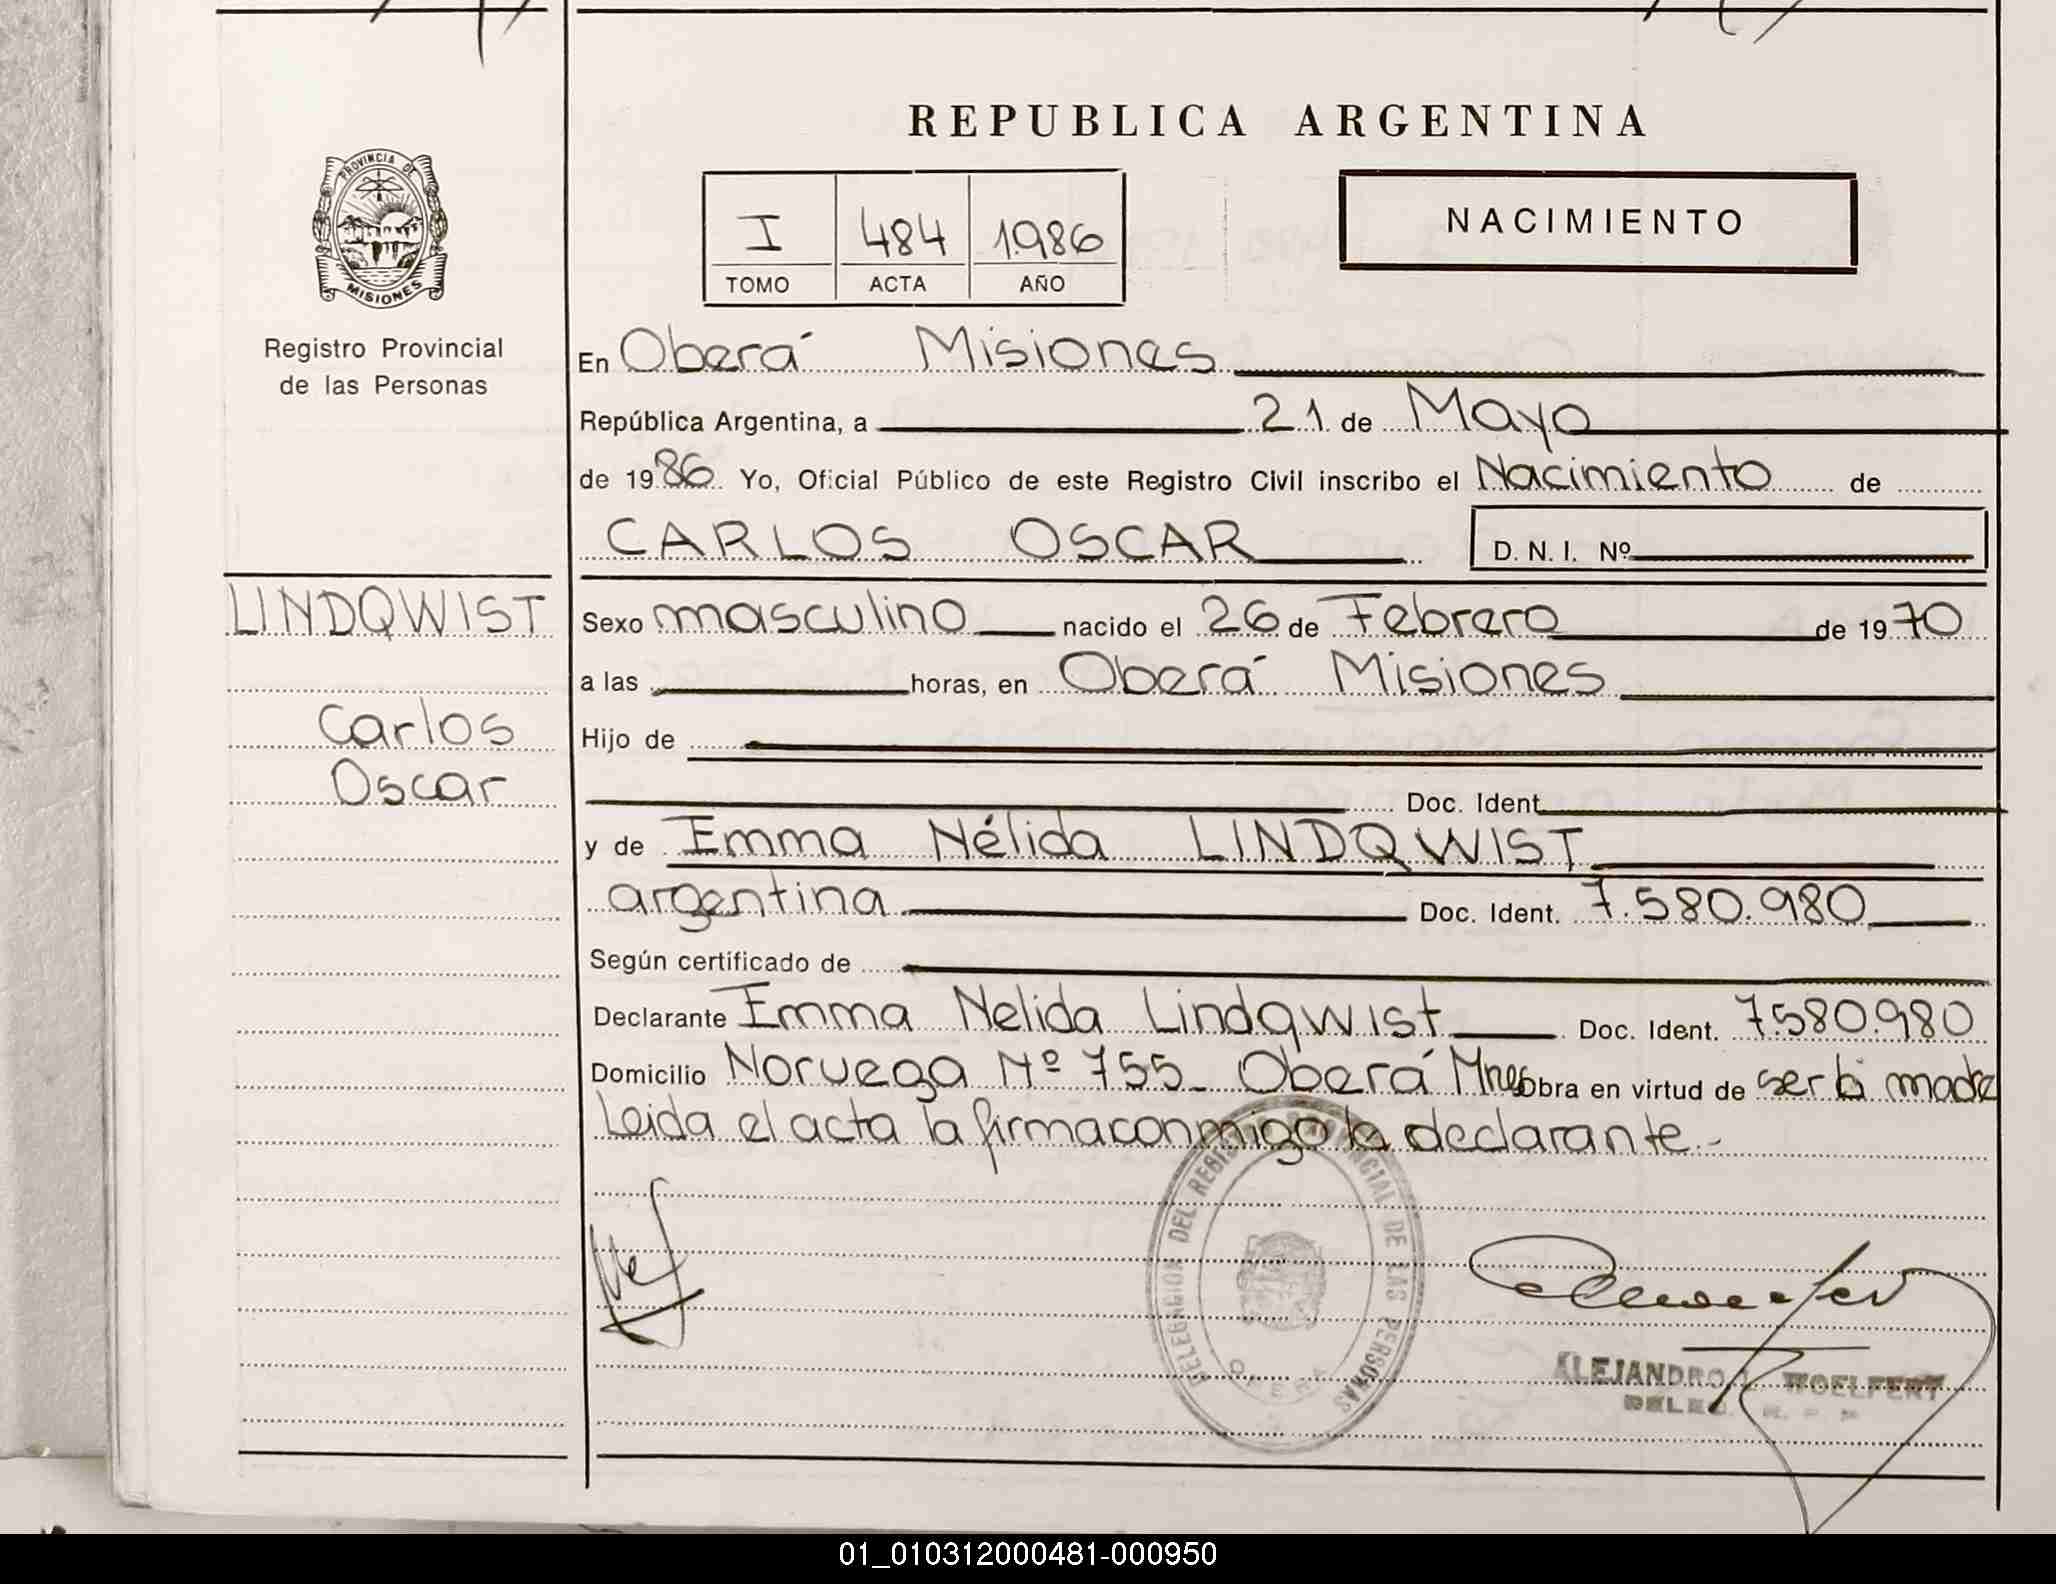 REPUBLICA ARGENTINA
PROVINCIA DE
MISIONES
Registro Provincial
de las Personas
I 484 1986
TOMO ACTA AÑO
NACIMIENTO
En Oberá Misiones
República Argentina, a 21 de Mayo
de 1986 Yo, Oficial Público de este Registro Civil inscribo el Nacimiento de
CARLOS OSCAR D. N. I. Nº
LINDQWIST
Carlos
Oscar
Sexo masculino nacido el 26 de Febrero de 1970
a las horas, en Oberá Misiones
Hijo de
Doc. Ident.
y de Emma Nélida LINDQWIST
argentina Doc. Ident. 7.580.980
Según certificado de
Declarante Emma Nelida Lindqwist Doc. Ident. 7.580.980
Domicilio Noruega Nº 755_ Oberá Mnes Obra en virtud de ser la madre
Leida el acta la firma conmigo la declarante.-
DELEGACION DEL REGISTRO PROVINCIAL DE LAS PERSONAS
OBERA
ALEJANDRO WOELFERT
01_010312000481-000950